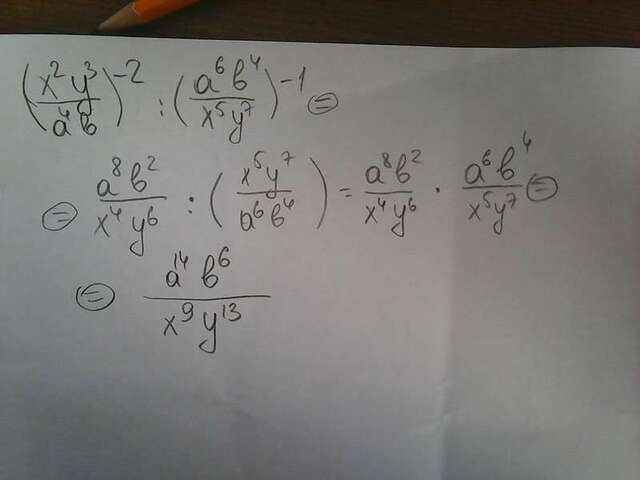 (x²y³/a⁴b)⁻² : (a⁶b⁴/x⁵y⁷)⁻¹ =
= a⁸b²/x⁴y⁶ : (x⁵y⁷/a⁶b⁴) = a⁸b²/x⁴y⁶ · a⁶b⁴/x⁵y⁷ =
= a¹⁴b⁶/x⁹y¹³